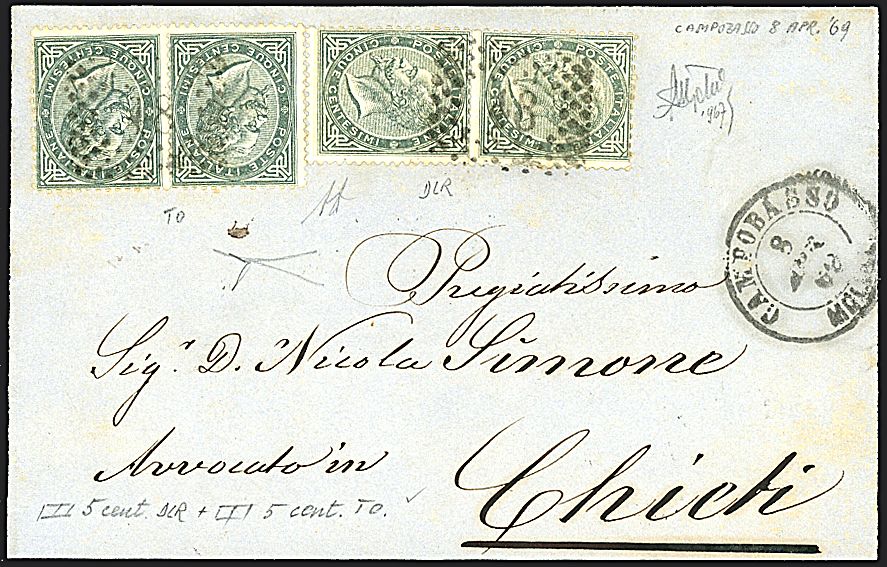 CAMPOBASSO 8 APR. '69
POSTE ITALIANE
CINQUE CENTESIMI
POSTE ITALIANE
CINQUE CENTESIMI
POSTE ITALIANE
CINQUE CENTESIMI
POSTE ITALIANE
CINQUE CENTESIMI
1967
TO
DLR
CAMPOBASSO
8
APR
Pregiatissimo
Sig.r D. Nicola Simone
Avvocato in
Chieti
5 cent. DLR + 5 cent. TO.